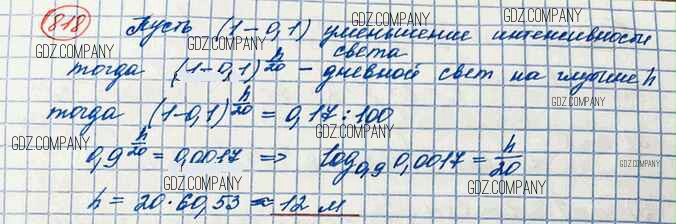 818 Пусть (1-0,1) уменьшение интенсивности
света
тогда (1-0,1)^(h/20) - дневной свет на глубине h
тогда (1-0,1)^(h/20) = 0,17 : 100
0,9^(h/20) = 0,0017 => log_0,9 0,0017 = h/20
h = 20·60,53 ≈ 12 м
GDZ.COMPANY
GDZ.COMPANY
GDZ.COMPANY
GDZ.COMPANY
GDZ.COMPANY
GDZ.COMPANY
GDZ.COMPANY
GDZ.COMPANY
GDZ.COMPANY
GDZ.COMPANY
GDZ.COMPANY
GDZ.COMPANY
GDZ.COMPANY